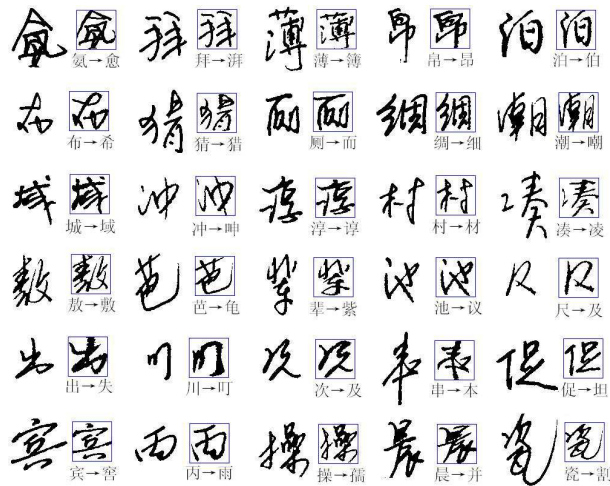 氨→愈 拜→湃 薄→簿 帛→昂 泊→伯
布→希 猜→猎 厕→而 绸→细 潮→嘲
城→域 冲→呻 淳→谆 村→材 凑→凌
敖→敷 芭→龟 辈→紫 池→议 尺→及
出→失 川→叮 次→及 串→本 促→坦
宾→窖 丙→雨 操→孺 晨→并 瓷→割